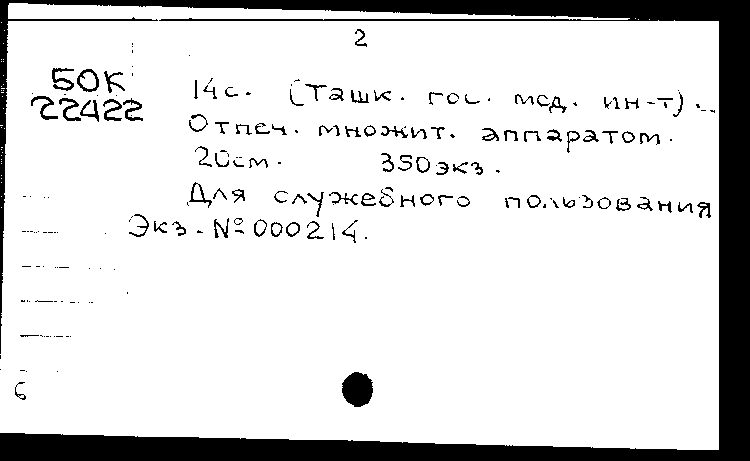 2
БОК
22422
14с. (Ташк. гос. мед. ин-т)..
Отпеч. множит. аппаратом.
20см. 350экз.
Для служебного пользования
Экз. № 000214.
6